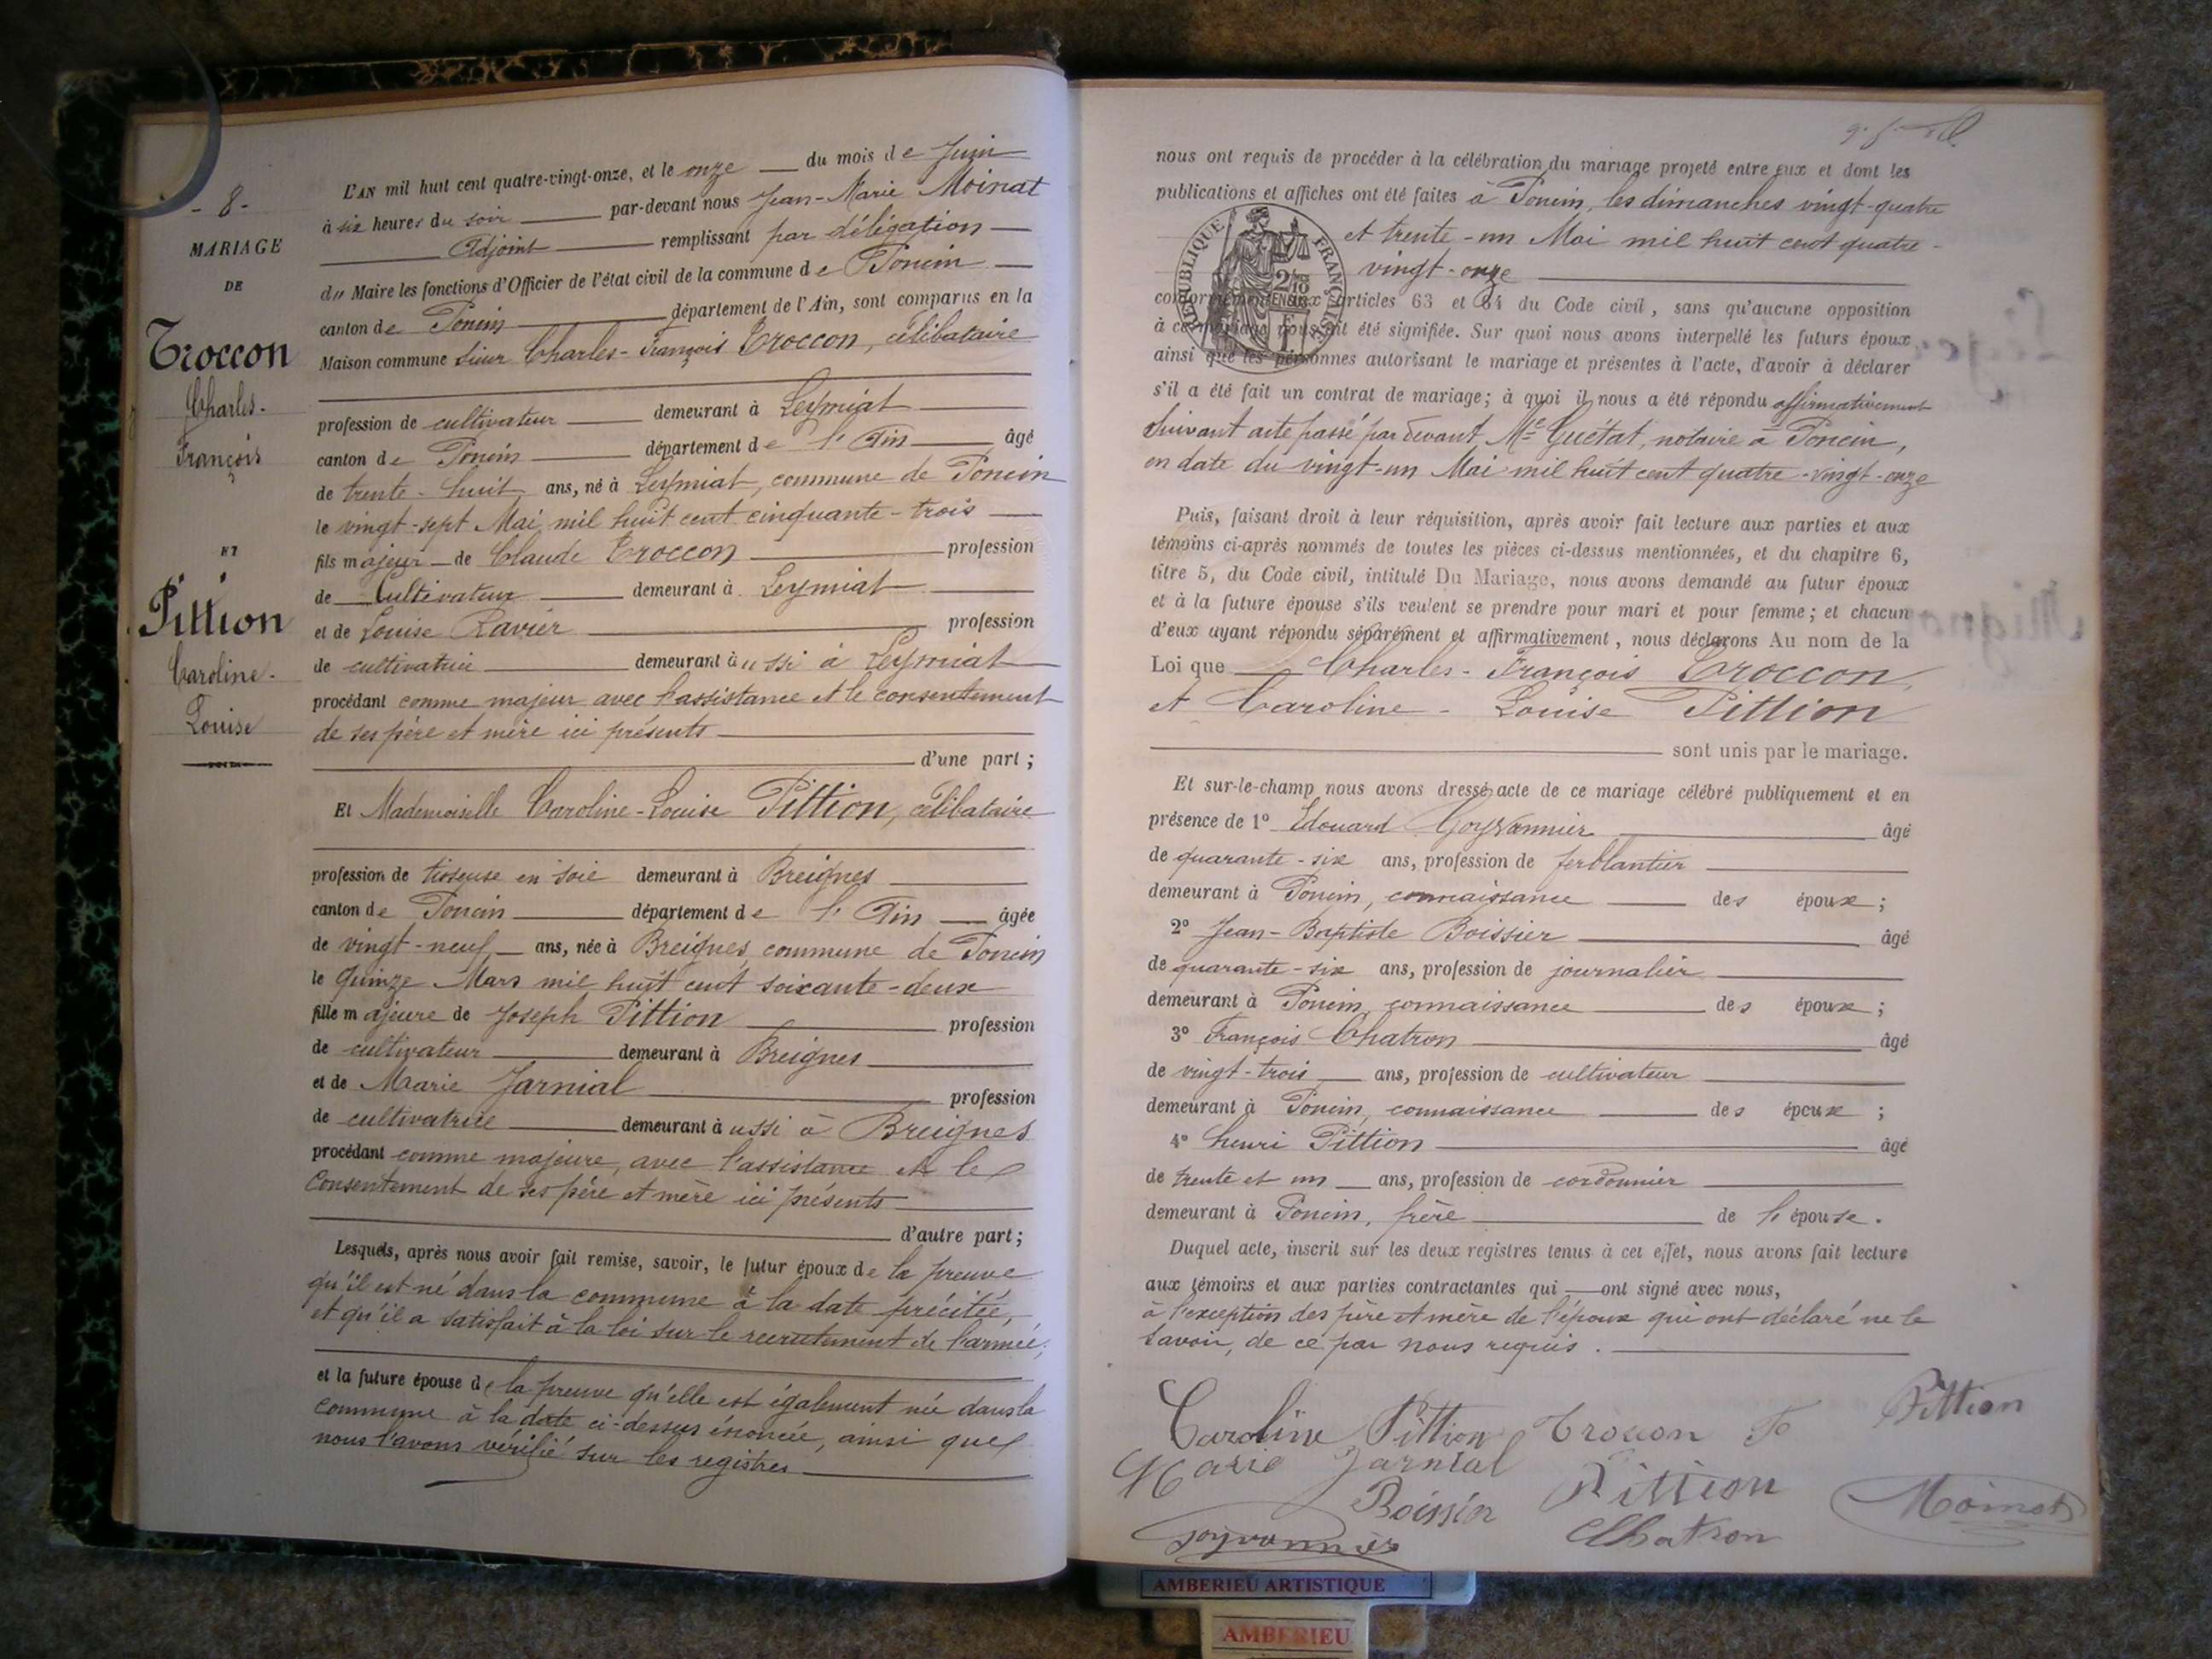 - 8 -
MARIAGE
DE
Troccon
Charles-
François
ET
Pittion
Caroline-
Louise
L'AN mil huit cent quatre-vingt-onze, et le onze du mois de Juin
à six heures du soir par-devant nous Jean-Marie Moinat
Adjoint remplissant par délégation
du Maire les fonctions d'Officier de l'état civil de la commune de Poncin
canton de Poncin département de l'Ain, sont comparus en la
Maison commune sieur Charles-François Troccon, célibataire
profession de cultivateur demeurant à Leymiat
canton de Poncin département de l'Ain âgé
de trente-huit ans, né à Leymiat, commune de Poncin
le vingt-sept Mai mil huit cent cinquante-trois
fils majeur de Claude Troccon profession
de Cultivateur demeurant à Leymiat
et de Louise Ravier profession
de cultivatrice demeurant aussi à Leymiat
procédant comme majeur avec l'assistance et le consentement
de ses père et mère ici présents
d'une part ;
Et Mademoiselle Caroline-Louise Pittion, célibataire
profession de tisseuse en soie demeurant à Breignes
canton de Poncin département de l'Ain âgée
de vingt-neuf ans, née à Breignes, commune de Poncin
le quinze Mars mil huit cent soixante-deux
fille majeure de Joseph Pittion profession
de cultivateur demeurant à Breignes
et de Marie Jarnial profession
de cultivatrice demeurant aussi à Breignes
procédant comme majeure, avec l'assistance et le
consentement de ses père et mère ici présents
d'autre part ;
Lesquels, après nous avoir fait remise, savoir, le futur époux de la preuve
qu'il est né dans la commune à la date précitée,
et qu'il a satisfait à la loi sur le recrutement de l'armée;
et la future épouse de la preuve qu'elle est également née dans la
commune à la date ci-dessus énoncée, ainsi que
nous l'avons vérifié sur les registres
nous ont requis de procéder à la célébration du mariage projeté entre eux et dont les
publications et affiches ont été faites à Poncin, les dimanches vingt-quatre
et trente-un Mai mil huit cent quatre-
vingt-onze
RÉPUBLIQUE FRANÇAISE
conformément aux articles 63 et 64 du Code civil, sans qu'aucune opposition
à ce mariage nous ait été signifiée. Sur quoi nous avons interpellé les futurs époux
ainsi que les personnes autorisant le mariage et présentes à l'acte, d'avoir à déclarer
s'il a été fait un contrat de mariage; à quoi il nous a été répondu affirmativement
suivant acte passé par devant Me Guétat, notaire à Poncin,
en date du vingt-un Mai mil huit cent quatre-vingt-onze
Puis, faisant droit à leur réquisition, après avoir fait lecture aux parties et aux
témoins ci-après nommés de toutes les pièces ci-dessus mentionnées, et du chapitre 6,
titre 5, du Code civil, intitulé Du Mariage, nous avons demandé au futur époux
et à la future épouse s'ils veulent se prendre pour mari et pour femme; et chacun
d'eux ayant répondu séparément et affirmativement, nous déclarons Au nom de la
Loi que Charles-François Troccon,
et Caroline-Louise Pittion
sont unis par le mariage.
Et sur-le-champ nous avons dressé acte de ce mariage célébré publiquement et en
présence de 1° Edouard Goyvannier âgé
de quarante-six ans, profession de ferblantier
demeurant à Poncin, connaissance des époux ;
2° Jean-Baptiste Boissier âgé
de quarante-six ans, profession de journalier
demeurant à Poncin, connaissance des époux ;
3° François Chatron âgé
de vingt-trois ans, profession de cultivateur
demeurant à Poncin, connaissance des époux ;
4° henri Pittion âgé
de trente et un ans, profession de cordonnier
demeurant à Poncin, frère de l'épouse.
Duquel acte, inscrit sur les deux registres tenus à cet effet, nous avons fait lecture
aux témoins et aux parties contractantes qui ont signé avec nous,
à l'exception des père et mère de l'époux qui ont déclaré ne le
savoir, de ce par nous requis.
Caroline Pittion Trocon Pittion
Marie Jarnial Pittion Moinat
Boissier
Goyvannier Chatron
AMBERIEU ARTISTIQUE
AMBERIEU